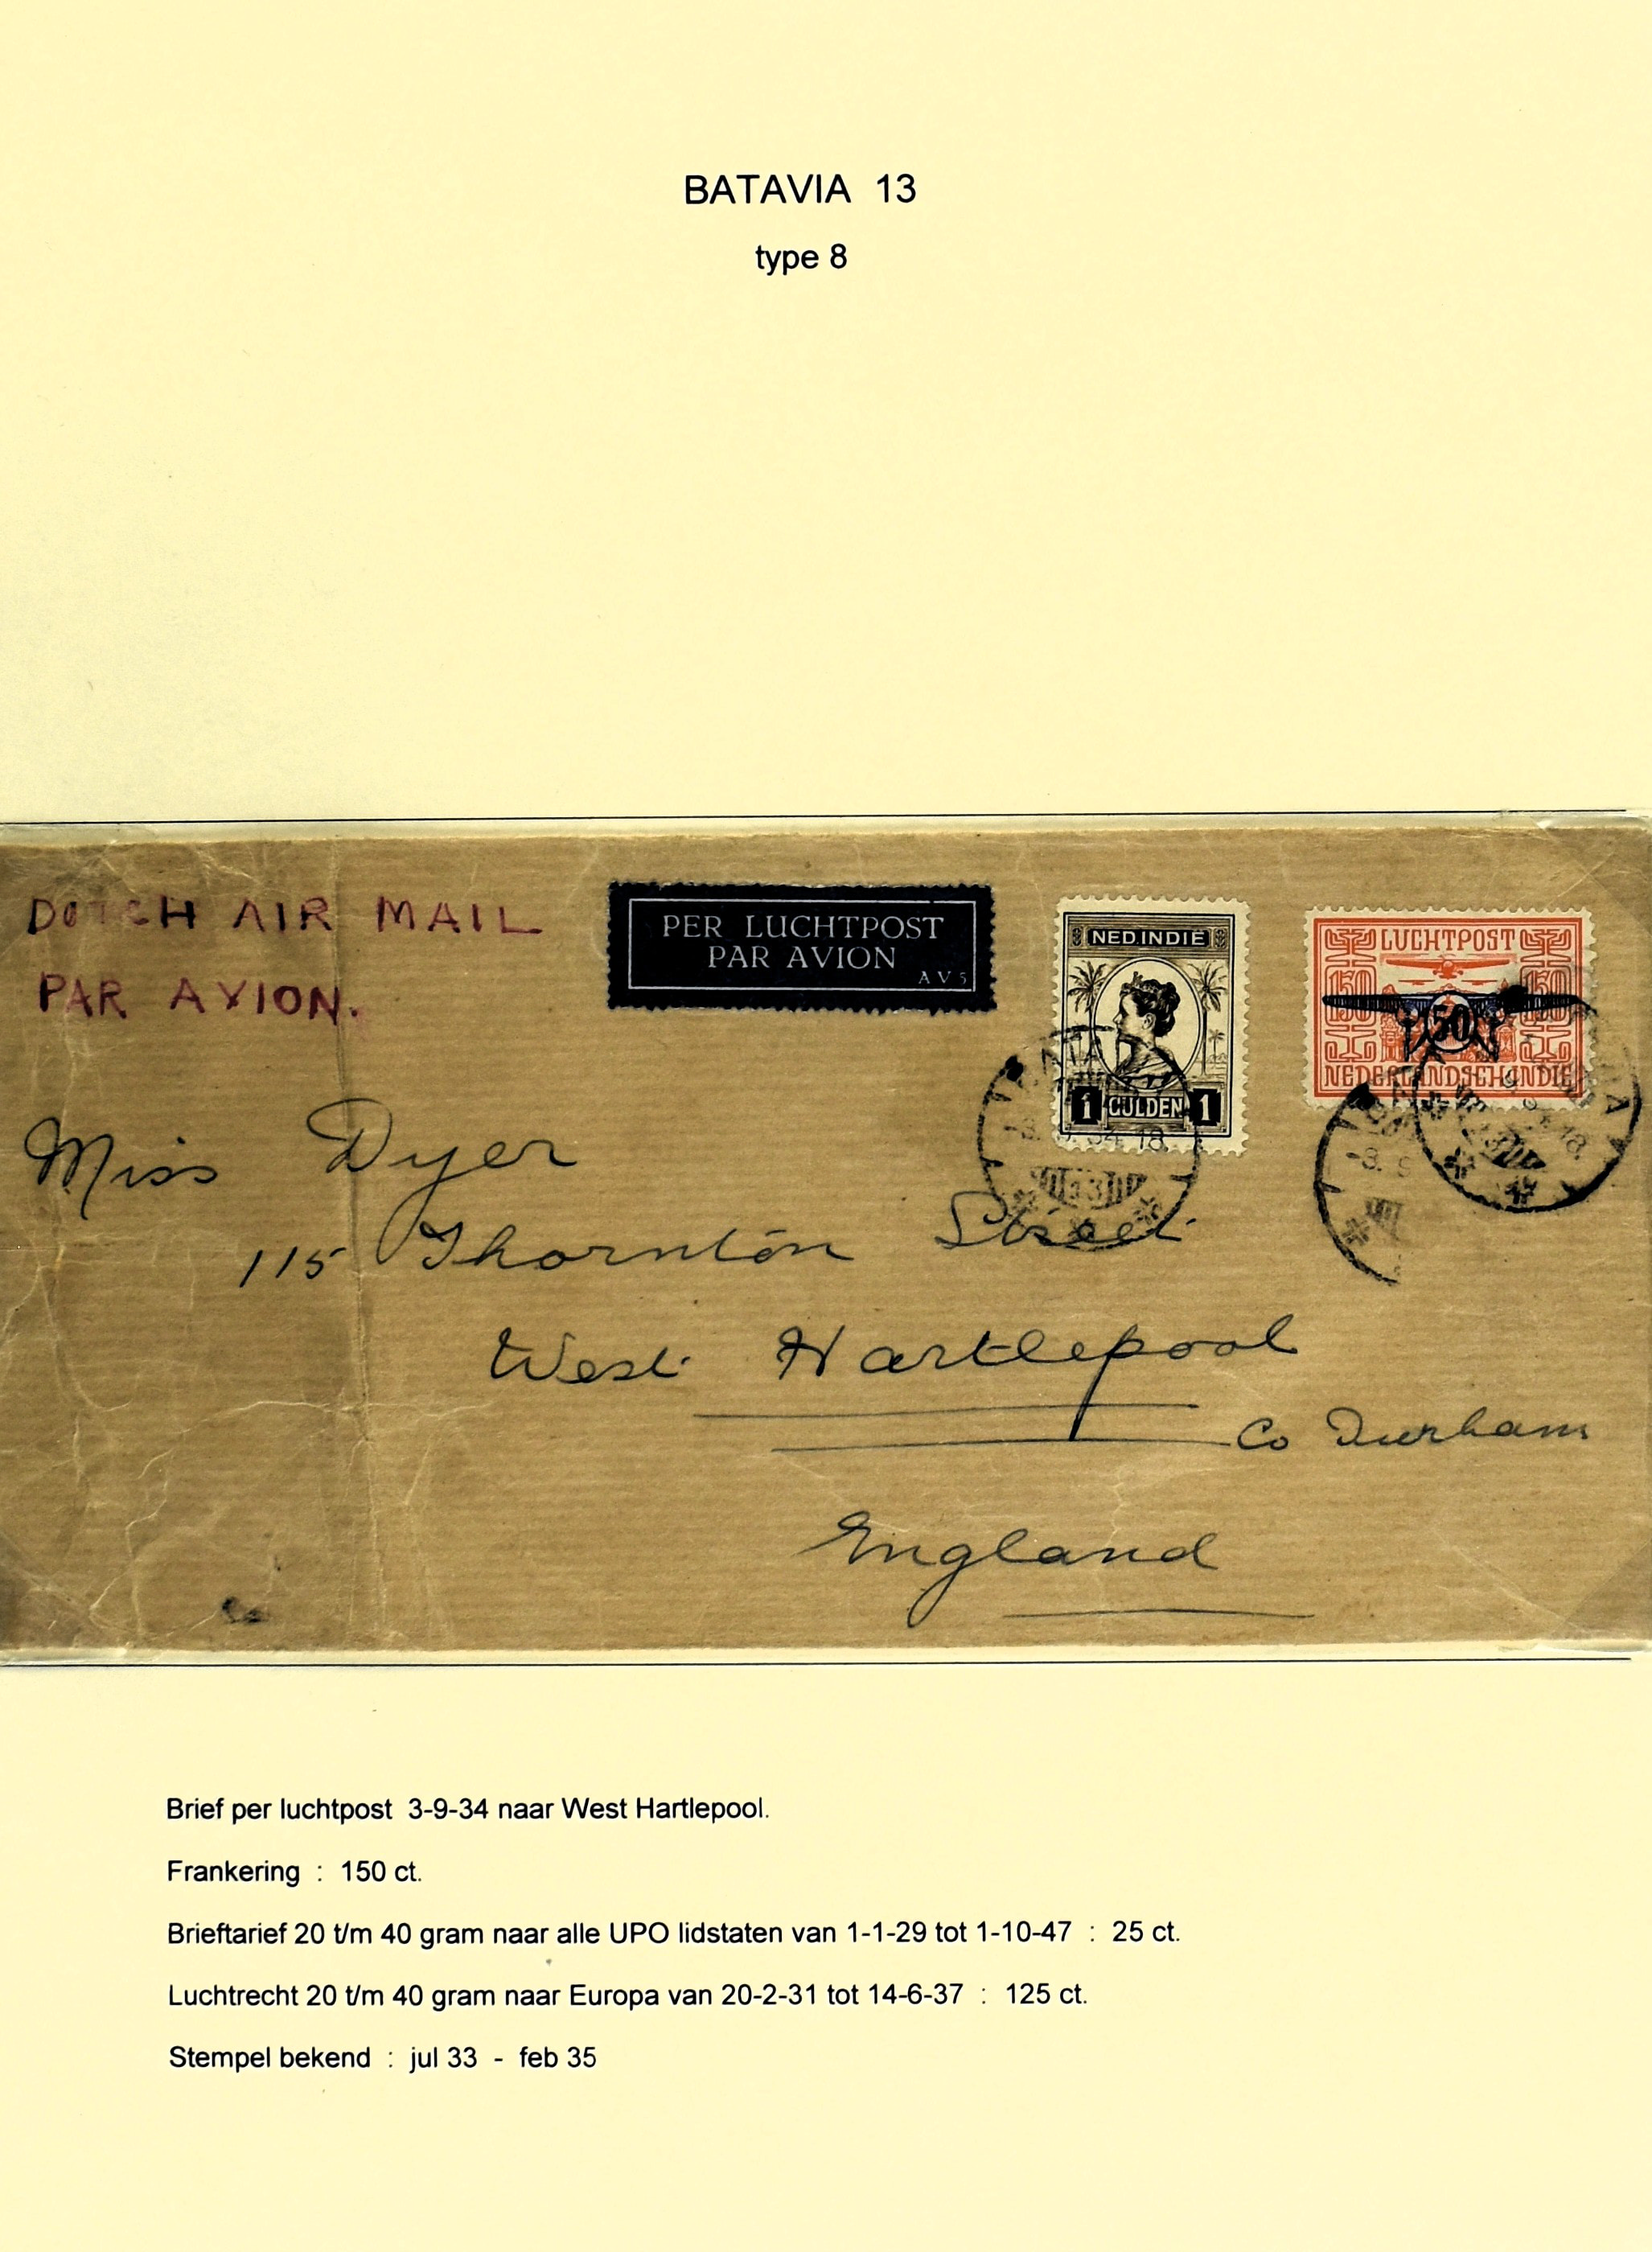 BATAVIA 13
type 8
DUTCH AIR MAIL
PAR AVION.
PER LUCHTPOST
PAR AVION
AV5
NED. INDIË
1 GULDEN 1
LUCHTPOST
150 150
50
NEDERLANDSCH-INDIE
-3. 9. 34. 18.
13
-3. 9
Miss Dyer
115 Thornton Street
West Hartlepool
Co Durham
England
Brief per luchtpost 3-9-34 naar West Hartlepool.
Frankering : 150 ct.
Brieftarief 20 t/m 40 gram naar alle UPO lidstaten van 1-1-29 tot 1-10-47 : 25 ct.
Luchtrecht 20 t/m 40 gram naar Europa van 20-2-31 tot 14-6-37 : 125 ct.
Stempel bekend : jul 33 - feb 35